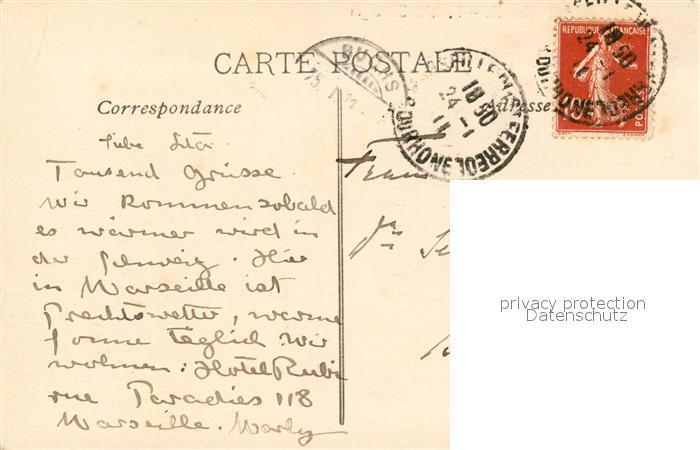 CARTE POSTALE
Correspondance
Adresse
REPUBLIQUE FRANÇAISE
10
POSTES
18 30
24 - 1
11
FERREOL
DU RHONE
18 30
24 - 1
Liebe
Tausend Grüsse.
Wir kommen sobald
es wärmer wird in
der Schweiz. Hier
in Marseille ist
Prachtswetter, warme
Sonne täglich. Wir
wohnen: Hotel Rubi
rue Paradies 118
Marseille.
Frau
Dr.
privacy protection
Datenschutz